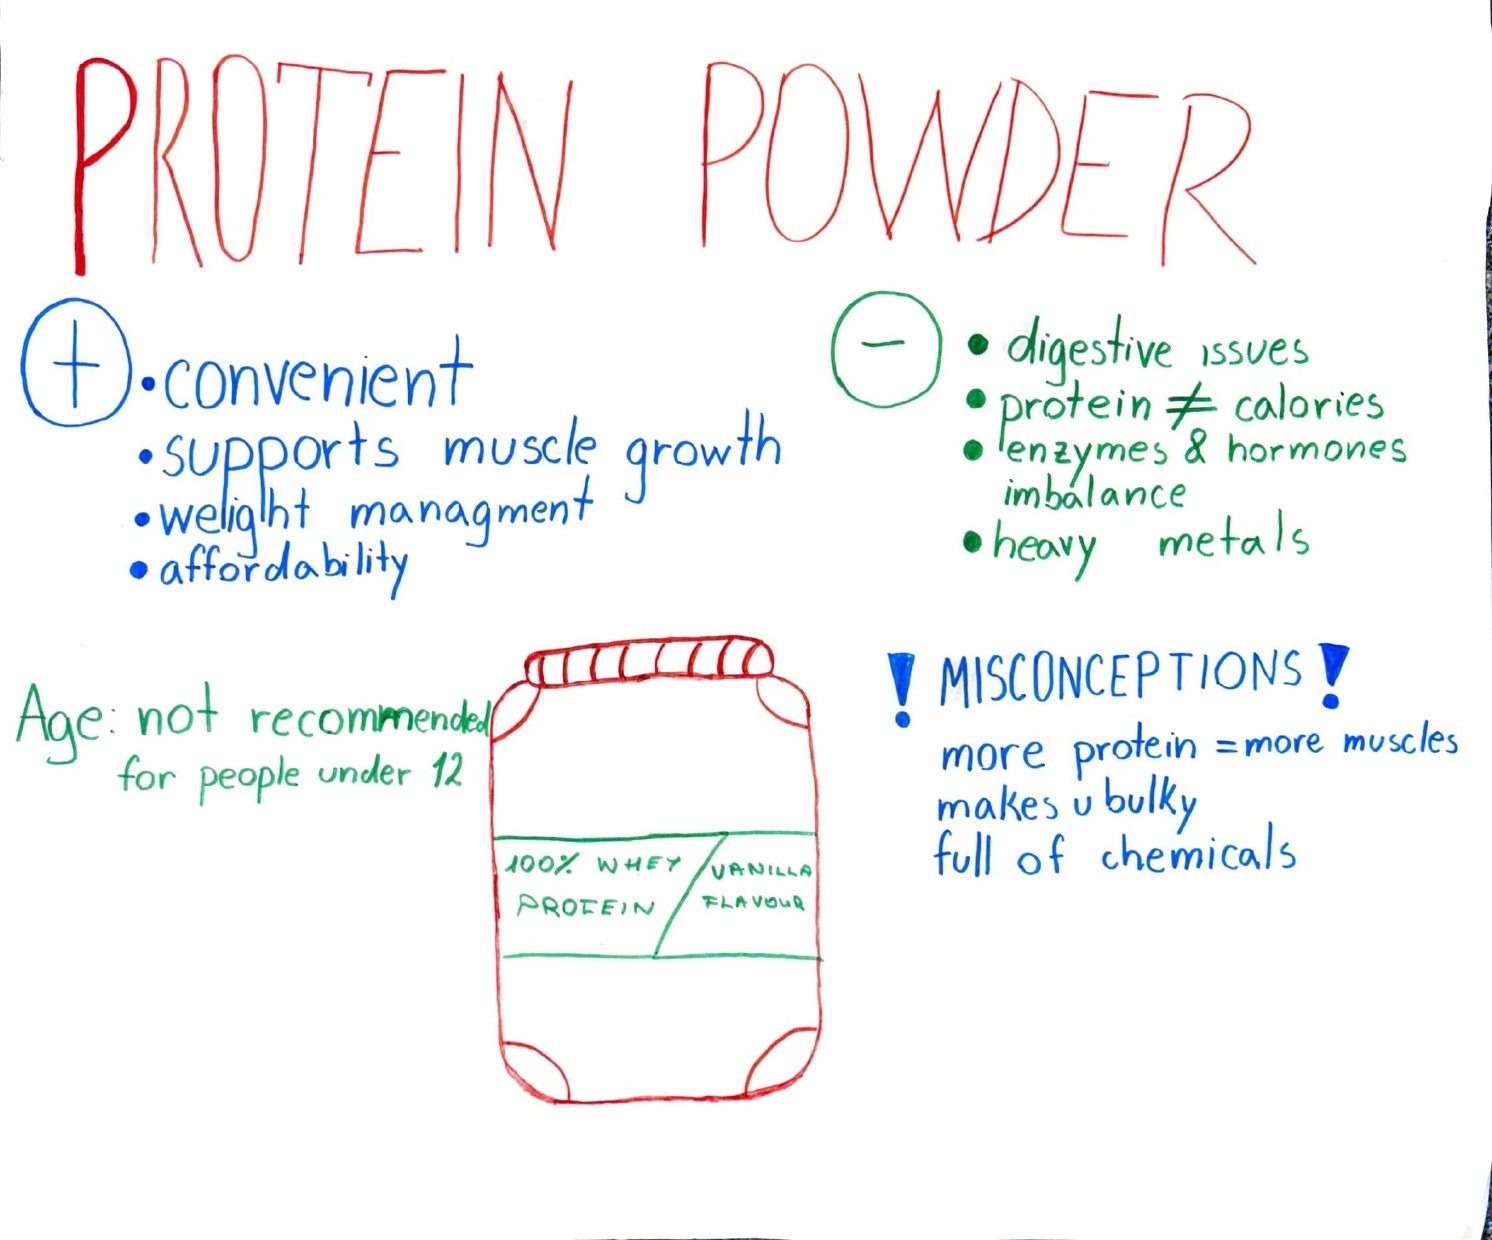 PROTEIN POWDER
+
• convenient
• supports muscle growth
• weight managment
• affordability
−
• digestive issues
• protein ≠ calories
• enzymes & hormones
imbalance
• heavy metals
Age: not recommended
for people under 12
100% WHEY
PROTEIN
VANILLA
FLAVOUR
! MISCONCEPTIONS !
more protein = more muscles
makes u bulky
full of chemicals